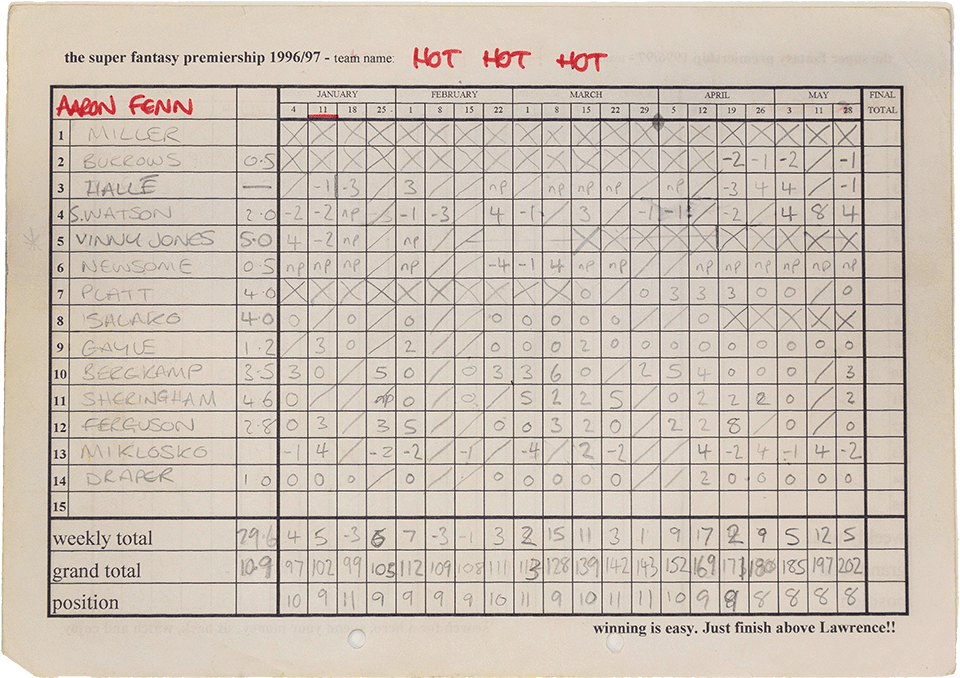 the super fantasy premiership 1996/97 - team name: HOT HOT HOT
AARON FENN JANUARY FEBRUARY MARCH APRIL MAY FINAL
4 11 18 25 1 8 15 22 1 8 15 22 29 5 12 19 26 3 11 28 TOTAL
1 MILLER X X X X X X X X X X X X X X X X X X X X
2 BURROWS 0.5 X X X X X X X X X X X X X X X -2 -1 -2 / -1
3 HALLE — / -1 -3 / 3 / / np / np np np / np / -3 4 4 / -1
4 S.WATSON 2.0 -2 -2 np -3 -1 -3 / 4 -1 / 3 / -1 -1 / -2 / 4 8 4
5 VINNY JONES 5.0 4 -2 np / np / X X X X X X X X X X
6 NEWSOME 0.5 np np np / np / / -4 -1 4 np np / / np np / np np np
7 PLATT 4.0 X X X X X X X X X X 0 / 0 3 3 3 0 0 / 0
8 SALAKO 4.0 0 / 0 / 0 / / 0 0 0 0 0 / / 0 X X X X X
9 GAYLE 1.2 / 3 0 / 2 / / 0 0 0 2 0 0 0 0 0 0 0 0 0
10 BERGKAMP 3.5 3 0 / 5 0 / 0 3 3 6 0 / 2 5 4 0 0 0 / 3
11 SHERINGHAM 4.6 0 / / np 0 / 0 / 5 2 2 5 / 0 2 2 2 0 / 2
12 FERGUSON 2.8 0 3 / 3 5 / / 0 0 3 2 0 / 2 2 8 / 0 / 0
13 MIKLOSKO -1 4 / -2 -2 / -1 / -4 / 2 -2 / / 4 -2 4 -1 4 -2
14 DRAPER 1.0 0 0 0 / 0 / / 0 0 0 0 0 / / 2 0 0 0 0 0
15
weekly total 29.6 4 5 -3 6 7 -3 -1 3 2 15 11 3 1 9 17 2 9 5 12 5
grand total 10.9 97 102 99 105 112 109 108 111 113 128 139 142 143 152 169 171 180 185 197 202
position 10 9 11 9 9 9 9 10 11 9 10 11 11 10 9 9 8 8 8 8
winning is easy. Just finish above Lawrence!!